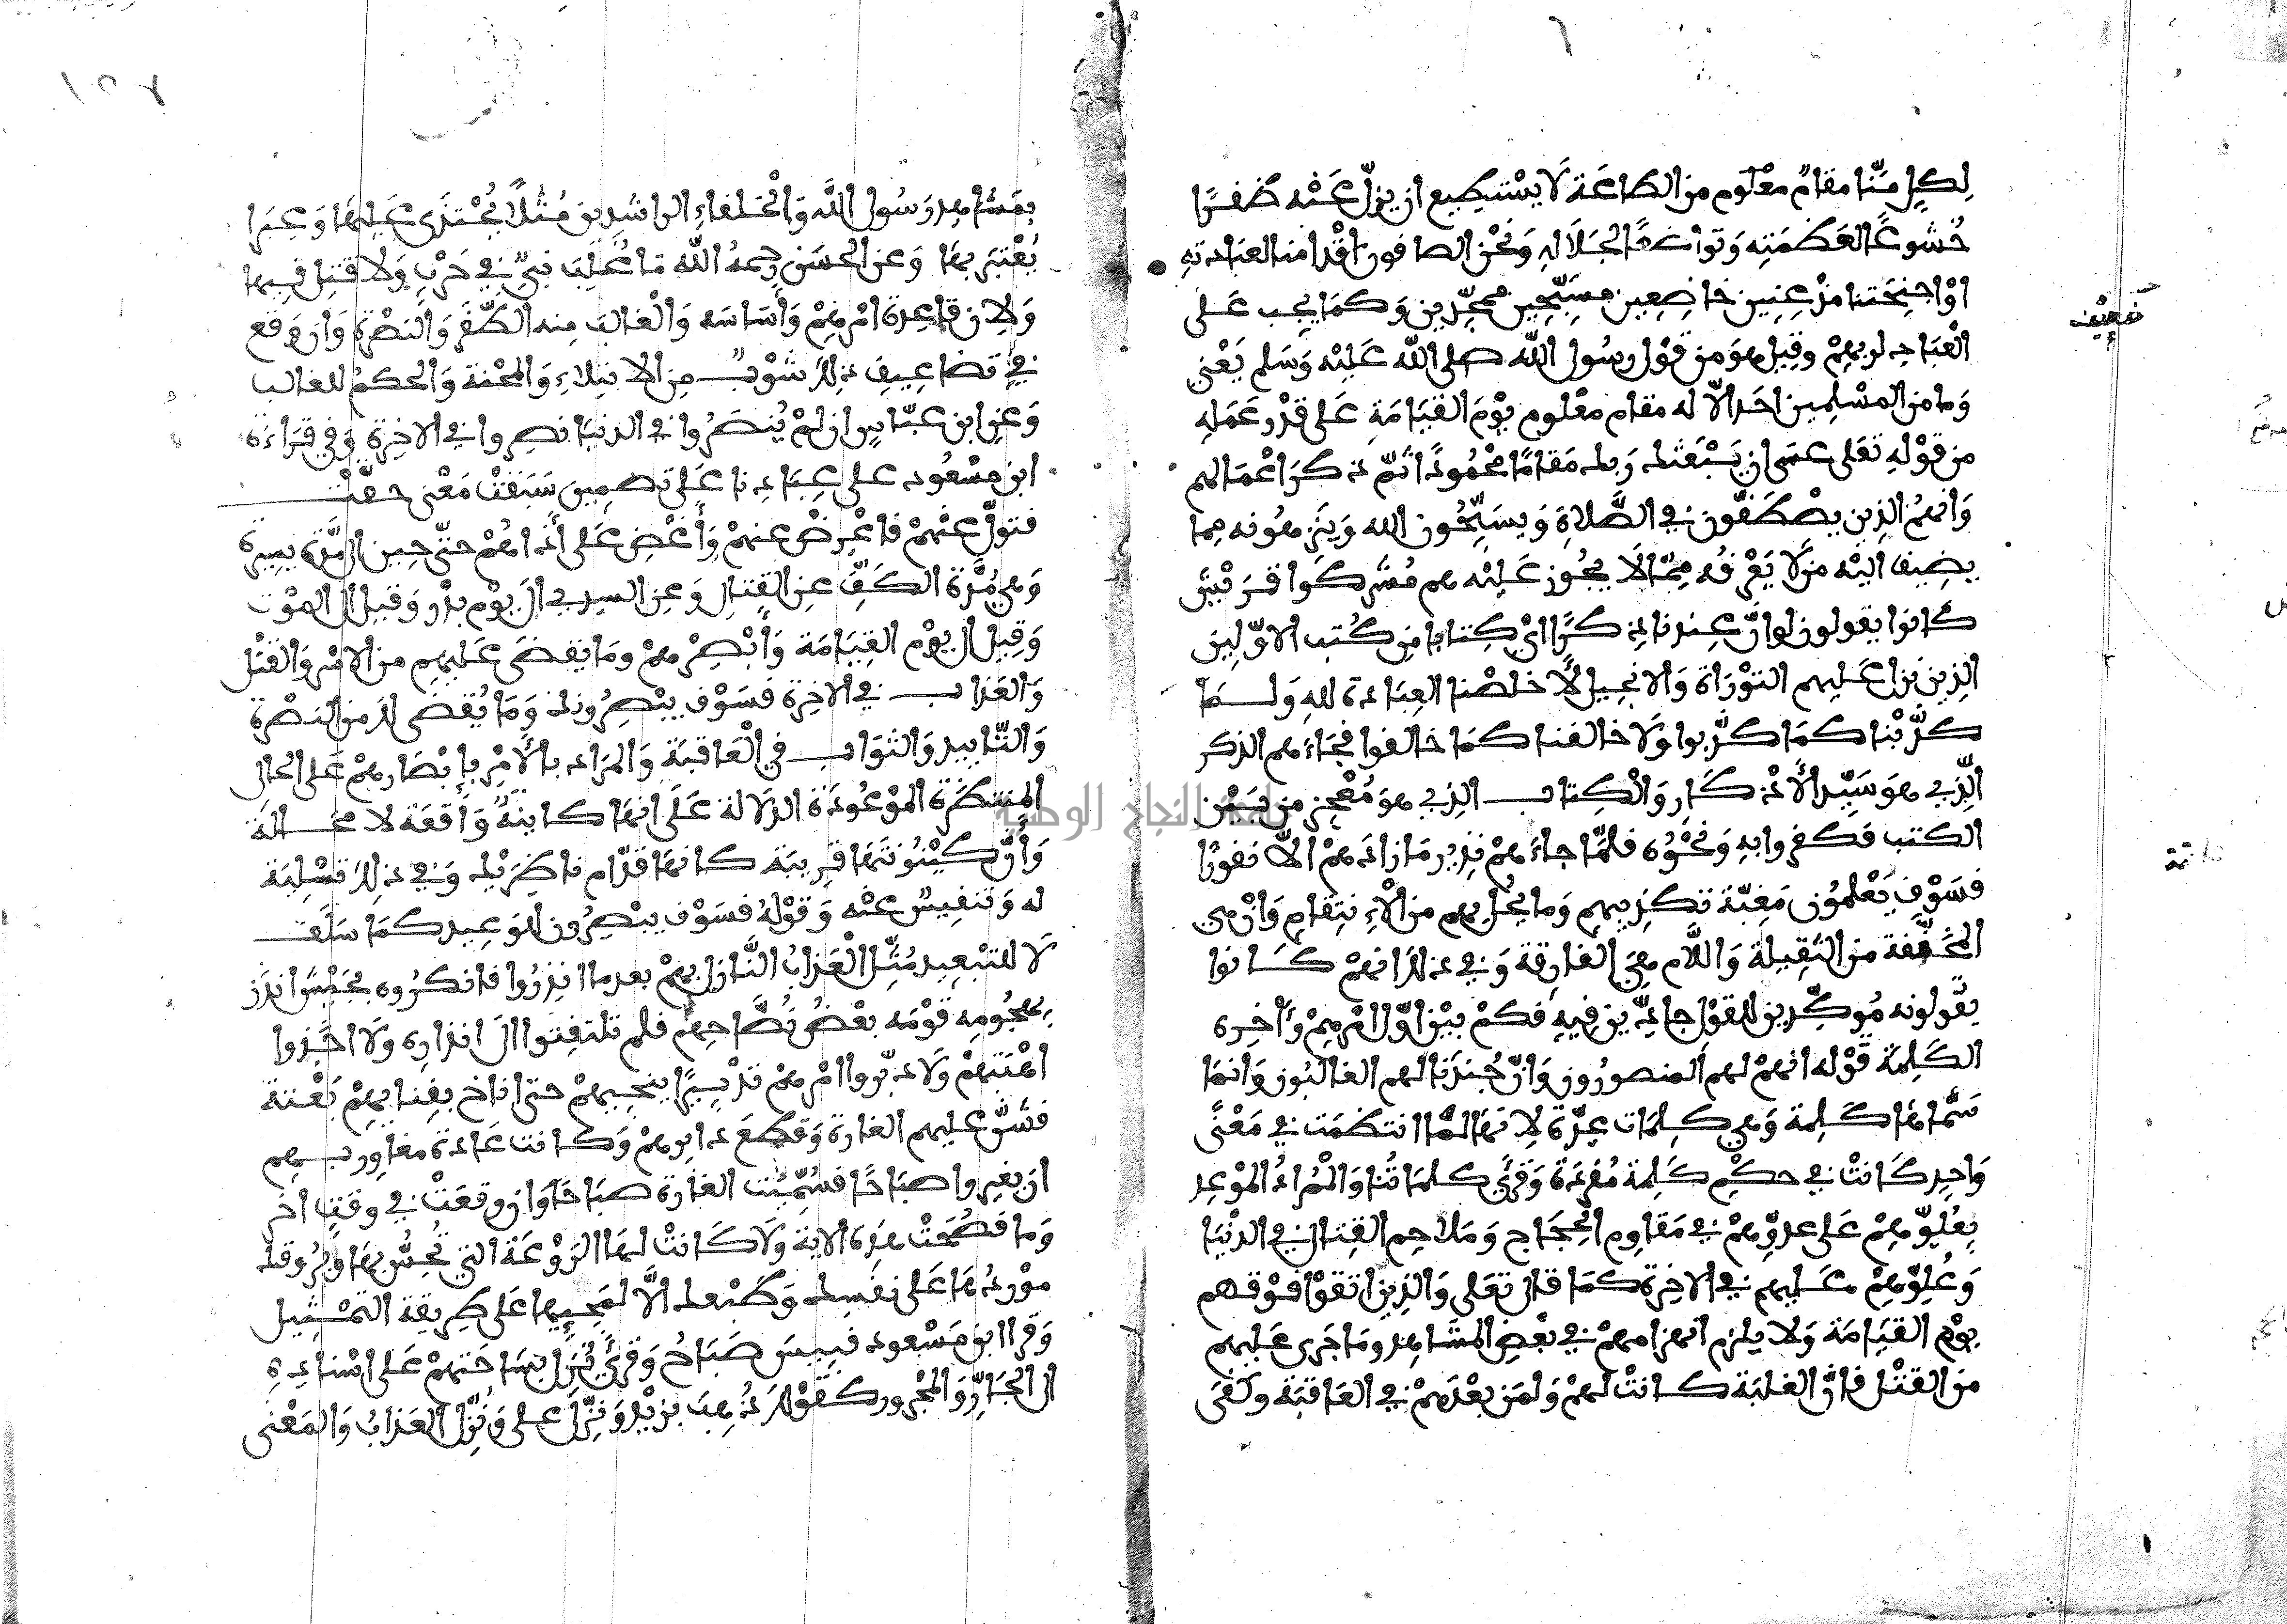 لِكلٍ مِنّا مقامٌ معْلوم من الطاعَة لَا يسْتطِيع ان يزلّ عَنْه ظفرًا
خُشوعًا لعَظمَتِه وَتواضعًا لجَلَالِه وَنحْن الصافون اقْدامنا لعبادته
اوْ اجنِحَتنا مذْعِنِين خاضِعِين مسَبّحِين ممجّدِين وَكمَا يجب عَلى
الْعبَاد لربهِمْ وقِيل هوَ من قوْل رسُول الله صلى الله عَليْه وَسَلم يَعْني
وَما من المسْلمِين احَد الّا له مقام معْلوم يوْمَ القيَامَةِ عَلى قدْر عَمَلِه
من قوْلِهِ تعَلى عسَى ان يَبْعَثك رَبك مَقامًا محْمُودًا ثمّ ذكرَ اعْمَالهم
وَانهمُ الذِين يصْطَفّون في الصَّلاةِ وَيسَبّحُون الله وَينزهُونه مما
يضِيف اليْه من لَا يَعْرفُه مِمّا لَا يجُوز عَليْه هم مُشْركوا قرَيْش
كانوا يقولون لوانَّ عِندنا ذكرًا ايْ كِتابا مِن كُتب الاوّلِين
الذِين نزل عَليهم التوْرَاة وَالانجِيل لَأخلصْنا العِبَادة لله وَلما
كذّبْنا كمَا كذّبوا وَلَا خالفنا كمَا خالفوا فجَاءَهم الذكر
الّذِي هوَ سَيِّد الْأذْكَارِ وَالْكِتاب الذِي هوَ مُعْجِز من بَيْن
الكتب فكفروا بهِ وَنحْوُه فلمَّا جاءَهمْ نذِير مَا زادَهمْ الّا نفورًا
فسَوْف يَعْلمُون مَغِبّة تكذِيبهِم وَما يحُل بهم من الْانتِقامِ وَانْ هي
المخَفّفة من الثقِيلة وَاللَّام هيَ الفارقة وَفي ذلك انهمْ كانوا
يقولونه مُوكّدِين للقوْل جادِّين فيهِ فكمْ بيْن اوّل امْرهِمْ وَآخِره
الكَلِمة قوْله انهمْ لهم المنصورُون وَانّ جُندَنا لهم الغالبُون وَانمَا
سَمّاهَا كَلِمة وَهي كلِمَات عِدّة لِانهَا لمّا انتظمَت في مَعْنًى
وَاحِد كَانتْ في حكْمِ كَلِمة مُفرَدَة وَقرئَ كلمَاتُنا وَالْمُرادُ الموْعِد
بِعُلوّهِمْ عَلى عدوّهمْ في مَقاوِم الْحِجَاج وَمَلاحِم القِتال في الدنْيَا
وَعُلوّهِمْ عَليهم في الاخِرَة كمَا قال تعَلى وَالذِين اتقوْا فوْقهم
يوْم القيَامَة وَلا يلزم انهزامهمْ في بعْض المشَاهد وَما جَرى عَليهم
من القتْل فانّ الغلبَة كانتْ لهمْ وَلمَن بعْدَهمْ في العَاقبَة وكفى
تصْنيف
بمَشاهد رَسُول اللَّه وَالْخلفاءِ الراشدِين مُثلًا يُحْتذَى عَليهَا وَعِبَرا
يُعْتبَر بهَا وَعن الحسَن رحِمَهُ الله مَا غُلِبَ نبِيّ في حَرْب وَلا قتِل فيها
وَلان قاعِدة امْرهِمْ وَأسَاسَه وَالْغالبَ منه الظَّفَر وَالنصْرة وَان وقع
في تضاعِيفِ ذلك شَوْب من الابتِلاءِ وَالمحْنة وَالحكمُ للغالب
وَعن ابن عبّاس ان لمْ يُنصَرُوا في الدنيَا نصِروا في الاخِرة وَفي قرَاءَة
ابن مسْعُود على عِبَادِنا عَلى تضمِين سَبَقتْ مَعْنى حقتْ
فتوَلّ عنْهمْ فاعْرِضْ عنهمْ وَأغْضِ عَلى أذَاهمْ حتّى حِين الى مُدّة يسِيرة
وَهي مُدَّة الكَفّ عن القِتال وَعن السدي الى يوْم بدْر وَقيل الى الموْت
وَقِيل الى يوْم القِيَامَة وَأبْصِرْهمْ ومَا يقضَى عَليهم من الاسْر وَالقتْل
وَالعذاب في الاخِرة فسَوْف يبْصِرُونك وَمَا يُقضَى لك من النصْرة
وَالتّاييد وَالثوَاب في الْعَاقبَة وَالمرَاد بالْأمْر بإبْصَارهمْ عَلى الحال
المنتظرَة الموْعُودَة الدلَالة عَلَى انهَا كائِنَةٌ وَاقعَة لا محالة
وَأنَّ كيْنُونتَهَا قرِيبَة كانهَا قدّام ناظِرَيْك وَفي ذلك تسْلِيَة
له وَتنفِيسٌ عنْه وَقوْلهُ فسَوْف يبْصِرُون للوَعِيد كمَا سَلف
لَا للتبْعِيد مُثّل الْعَذابُ النَّازل بهمْ بعد ما انذِرُوا فانكرُوه بجَيْش انذَر
بهجُومِه قوْمَه بعْضُ نُصَّاحِهم فلم تلتفِتوا الَى انذاره وَلَا اخَذوا
اهْبَتهمْ وَلَا دبّروا امْرهمْ تدْبيرًا ينجيهمْ حتى اناخ بفِنائهِمْ بَغْتة
فشَنَّ عليهم الغارة وَقطعَ دابرهمْ وَكانت عَادة مغاويرهم
ان يغيروا صبَاحًا فسُمّيَت الغارة صبَاحًا وَان وقعَتْ في وقتٍ اخر
وَما فصُحَتْ هذِه الاية وَلَا كَانتْ لهَا الرَوْعَة التي تُحِسّ بهَا وَيرُوقك
موْردُهَا عَلى نفسِك وَطبْعك الّا لمَجيئِها عَلى طرِيقة التمْثِيل
وَقرا ابن مَسْعود فبِيسَ صَبَاحُ وَقرئَ نُزلَ بسَاحَتهمْ عَلى اسْنادِهِ
الى الْجَارّ وَالمجْرور كقوْلك ذُهِبَ بزيْد وَنزّلَ على وَنُزِّل العَذابُ وَالمَعْنى